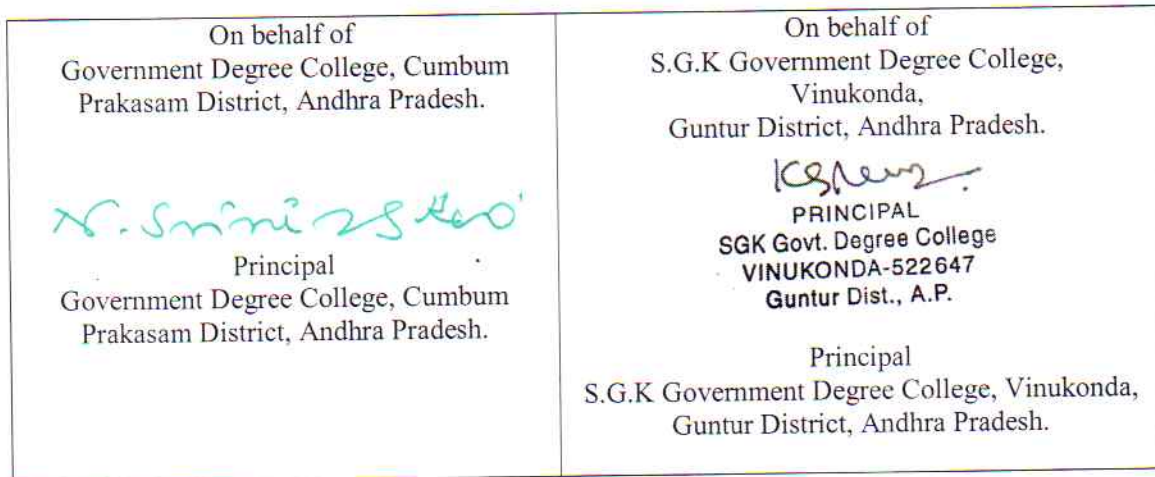 On behalf of
Government Degree College, Cumbum
Prakasam District, Andhra Pradesh.
N. Srini
Principal
Government Degree College, Cumbum
Prakasam District, Andhra Pradesh.
On behalf of
S.G.K Government Degree College,
Vinukonda,
Guntur District, Andhra Pradesh.
PRINCIPAL
SGK Govt. Degree College
VINUKONDA-522647
Guntur Dist., A.P.
Principal
S.G.K Government Degree College, Vinukonda,
Guntur District, Andhra Pradesh.